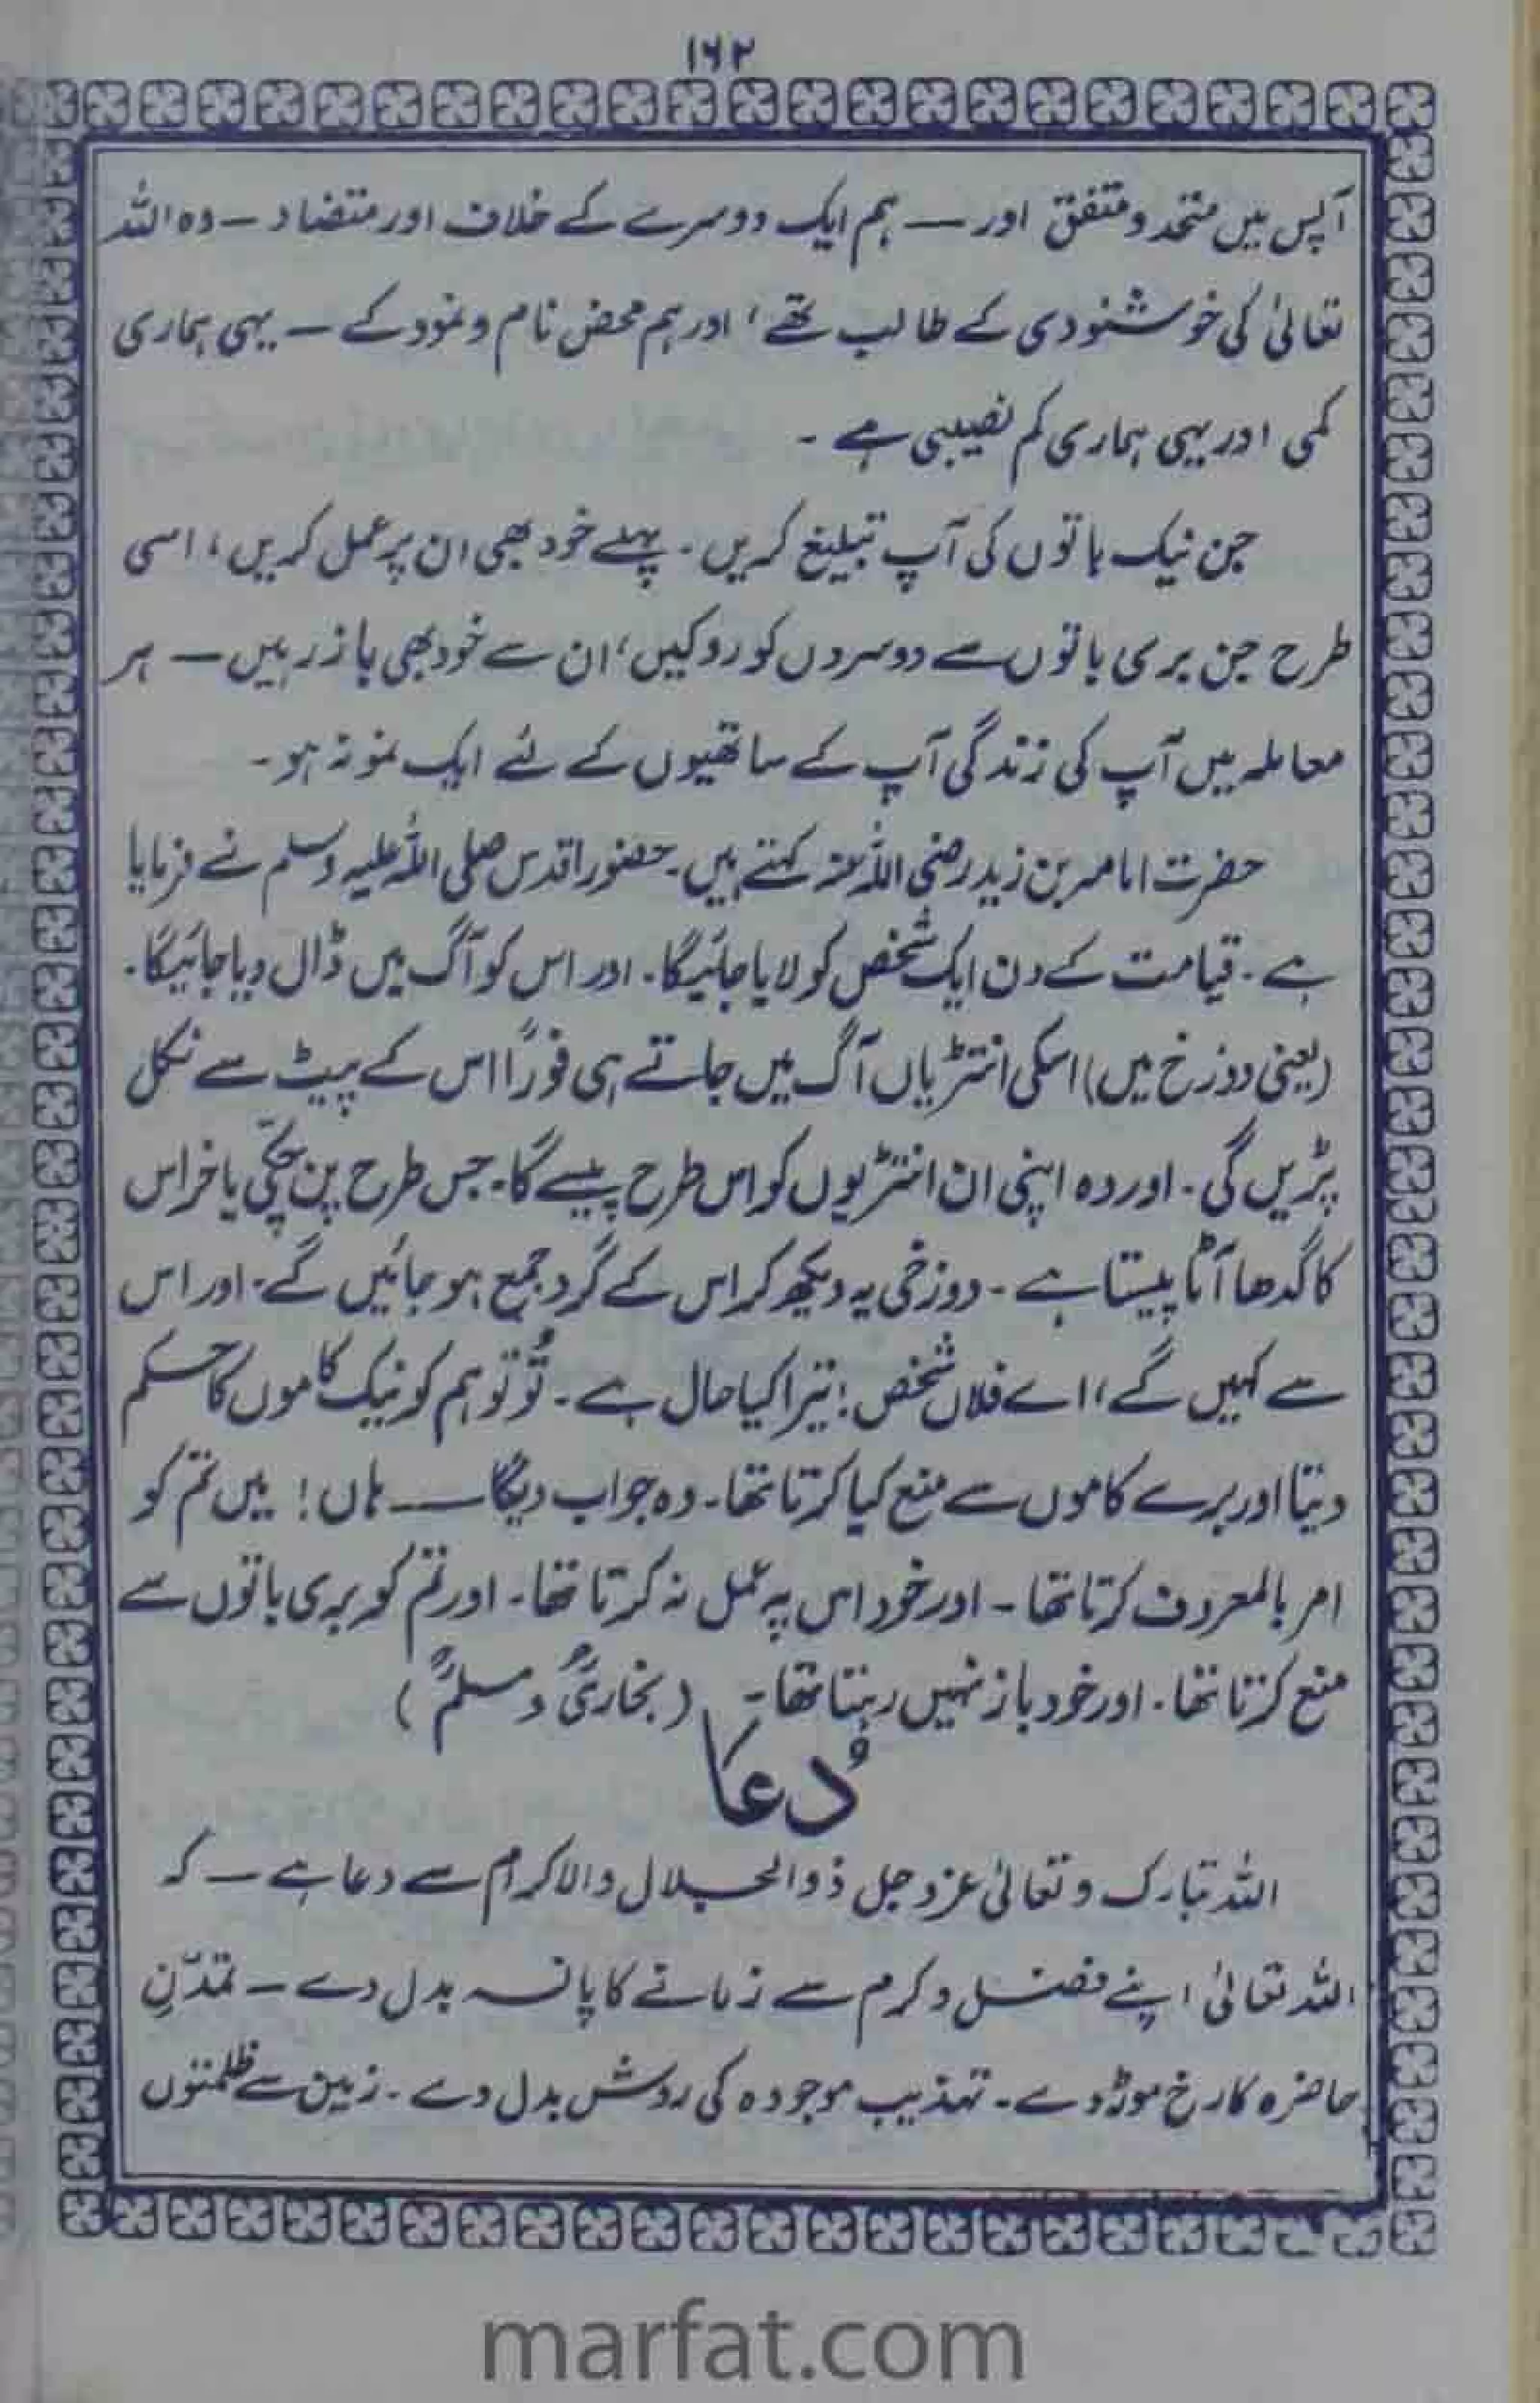 ۱۶۲
آپس میں متحد و متفق اور — ہم ایک دوسرے کے خلاف اور متضاد — وہ اللہ
تعالیٰ کی خوشنودی کے طالب تھے، اور ہم محض نام و نمود کے — یہی ہماری
کمی اور یہی ہماری کم نصیبی ہے ۔
جن نیک باتوں کی آپ تبلیغ کریں ۔ پہلے خود بھی ان پر عمل کریں، اسی
طرح جن بری باتوں سے دوسروں کو روکیں، ان سے خود بھی باز رہیں — ہر
معاملہ میں آپ کی زندگی آپ کے ساتھیوں کے لئے ایک نمونہ ہو ۔
حضرت امامہ بن زید رضی اللہ عنہ کہتے ہیں ۔ حضور اقدس صلی اللہ علیہ وسلم نے فرمایا
ہے ۔ قیامت کے دن ایک شخص کو لایا جائیگا ۔ اور اس کو آگ میں ڈال دیا جائیگا ۔
(یعنی دوزخ میں) اسکی انتڑیاں آگ میں جاتے ہی فوراً اس کے پیٹ سے نکل
پڑیں گی ۔ اور وہ اپنی ان انتڑیوں کو اس طرح پیسے گا ۔ جس طرح پن چکّی یا خراس
کا گدھا آٹا پیستا ہے ۔ دوزخی یہ دیکھ کر اس کے گرد جمع ہو جائیں گے ۔ اور اس
سے کہیں گے، اے فلاں شخص! تیرا کیا حال ہے ۔ تُو تو ہم کو نیک کاموں کا حکم
دیتا اور برے کاموں سے منع کیا کرتا تھا ۔ وہ جواب دیگا — ہاں! میں تم کو
امر بالمعروف کرتا تھا ۔ اور خود اس پہ عمل نہ کرتا تھا ۔ اور تم کو بری باتوں سے
منع کرتا تھا ۔ اور خود باز نہیں رہتا تھا ۔ (بخاریؒ و مسلمؒ)
دُعا
اللہ تبارک و تعالیٰ عزوجل ذوالجلال والاکرام سے دعا ہے — کہ
اللہ تعالیٰ اپنے فضل و کرم سے زمانے کا پانسہ بدل دے — تمدّنِ
حاضرہ کا رخ موڑ دے ۔ تہذیب موجودہ کی روش بدل دے ۔ زمین سے ظلمتوں
marfat.com